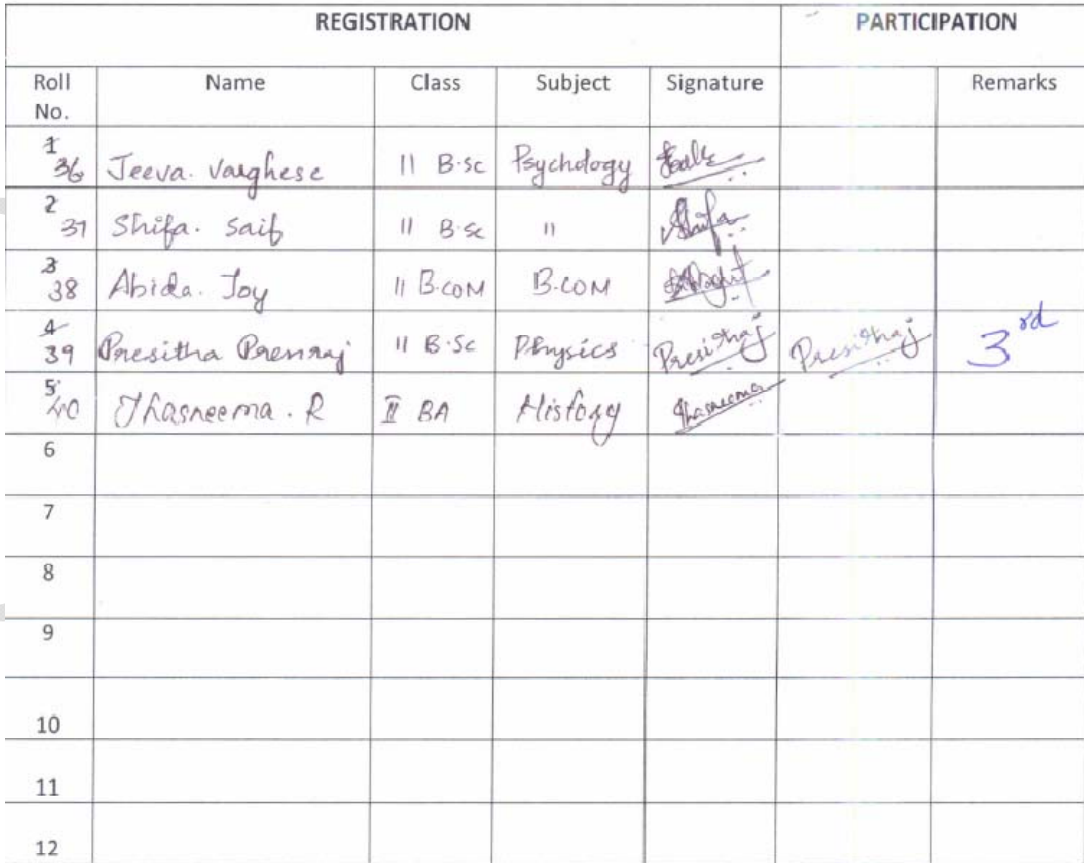 REGISTRATION PARTICIPATION
Roll No. Name Class Subject Signature Remarks
1 36 Jeeva. Varghese II B.sc Psychology
2 37 Shifa. Saif II B.sc " Shifa
3 38 Abida. Joy II B.COM B.COM
4 39 Presitha Premraj II B.Sc Physics Presithraj Presithraj 3rd
5 40 Thasneema. R II BA History Thasneema
6
7
8
9
10
11
12